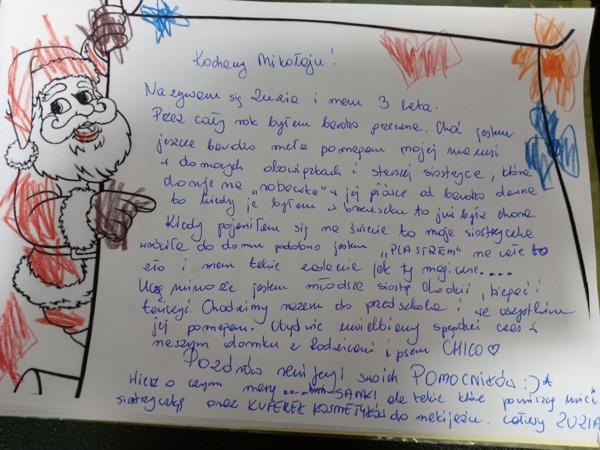 Kochany Mikołaju!
Nazywam się Zuzia i mam 3 lata.
Przez cały rok byłam bardzo grzeczna. Choć jestem
jeszcze bardzo mała pomagam mojej mamusi
w domowych obowiązkach i starszej siostrzyce, która
na i jej od bardzo dawna
bo kiedy ja byłam w brzuszku to już była chora.
Kiedy pojawiłam się na świecie to moja siostrzyczka
wróciła do domu podobno jestem "PLASTREM" na całe to
zło i mam takie zadanie jak ty magiczne....
Uczę mimo że jestem młodsza siostrę chodzić, biegać i
tańczyć. Chodzimy razem do przedszkola i we wszystkim
jej pomagam. Obydwie uwielbiamy spędzać czas w
naszym domku z Rodzicami i psem CHICO ♡
Pozdrów renifery i swoich POMOCNIKÓW :) *
Wiesz o czym marzę ... SANKI ale takie które pomieszczą mnie i
siostrzyczkę oraz KUFEREK KOSMETYKÓW do makijażu. całusy ZUZIA